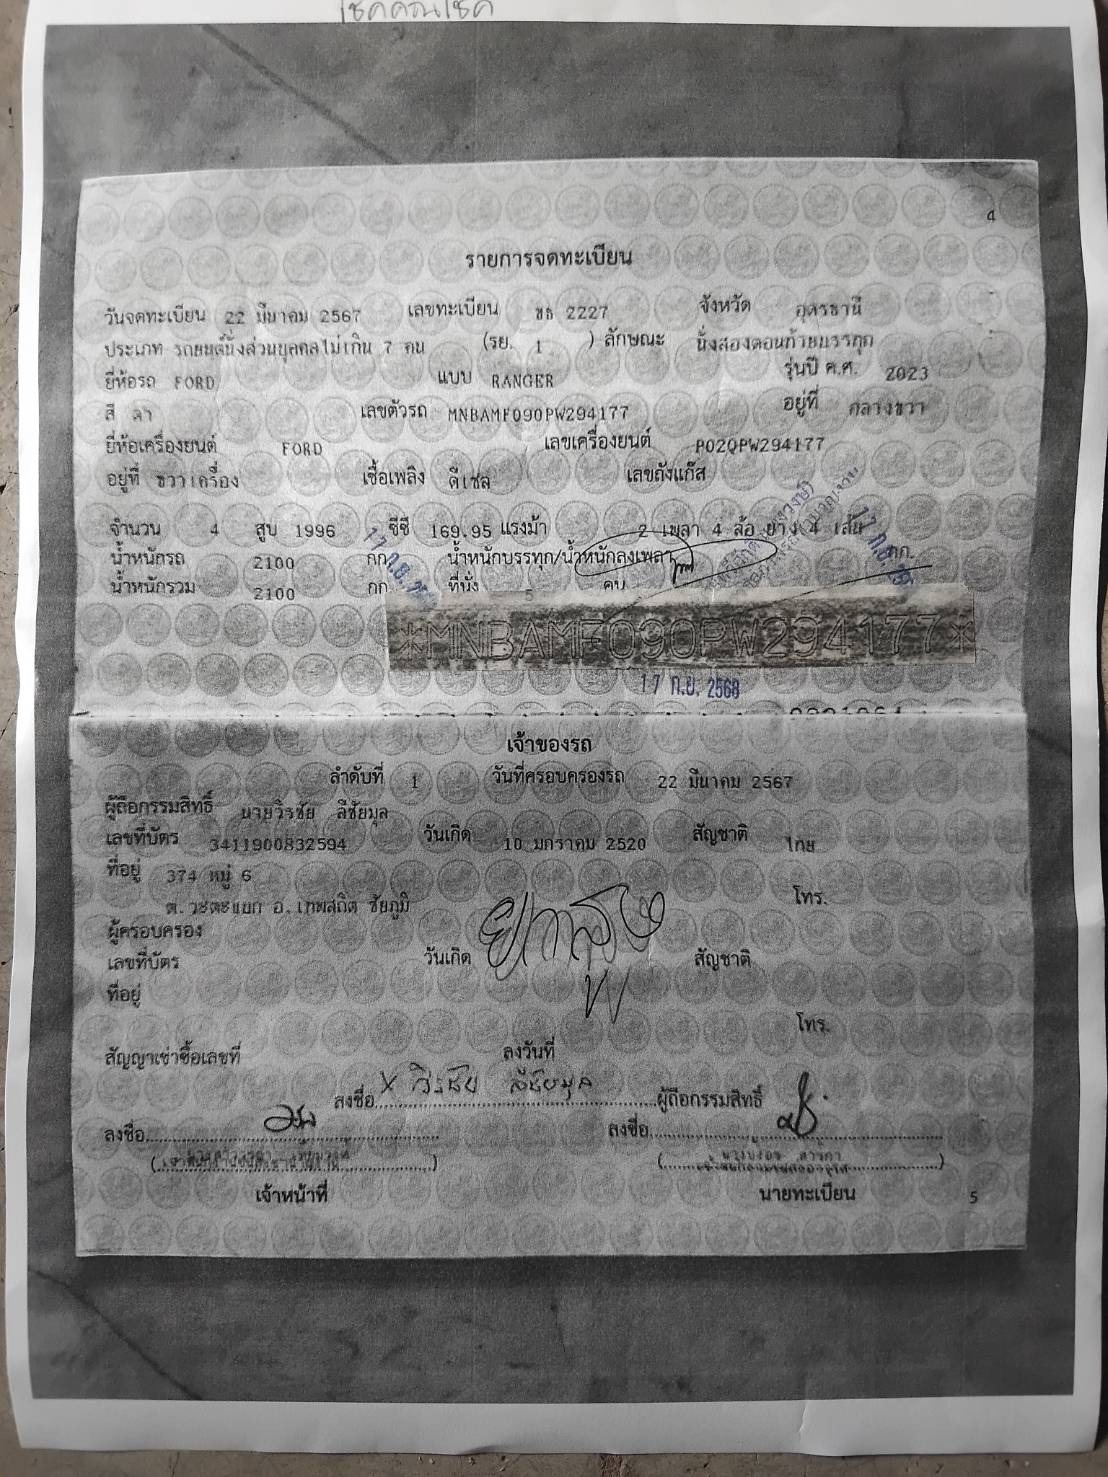 เชคคุณเชค
4
รายการจดทะเบียน
วันจดทะเบียน 22 มีนาคม 2567 เลขทะเบียน ขธ 2227 จังหวัด อุดรธานี
ประเภท รถยนต์นั่งส่วนบุคคลไม่เกิน 7 คน (รย. 1 ) ลักษณะ นั่งสองตอนท้ายบรรทุก
ยี่ห้อรถ FORD แบบ RANGER รุ่นปี ค.ศ. 2023
สี ดำ เลขตัวรถ MNBAMF090PW294177 อยู่ที่ กลางขวา
ยี่ห้อเครื่องยนต์ FORD เลขเครื่องยนต์ P02QPW294177
อยู่ที่ ขวาเครื่อง เชื้อเพลิง ดีเซล เลขถังแก๊ส
จำนวน 4 สูบ 1996 ซีซี 169.95 แรงม้า 2 เพลา 4 ล้อ ยาง 4 เส้น
น้ำหนักรถ 2100 กก. น้ำหนักบรรทุก/น้ำหนักลงเพลา กก.
น้ำหนักรวม 2100 กก. ที่นั่ง 5 คน
*MNBAMF090PW294177*
17 ก.ย. 2568
เจ้าของรถ
ลำดับที่ 1 วันที่ครอบครองรถ 22 มีนาคม 2567
ผู้ถือกรรมสิทธิ์ นายวิรชัย ลีชัยมูล
เลขที่บัตร 3411900832594 วันเกิด 10 มกราคม 2520 สัญชาติ ไทย
ที่อยู่ 374 หมู่ 6
ต.วะตะแบก อ.เทพสถิต ชัยภูมิ โทร.
ผู้ครอบครอง
เลขที่บัตร วันเกิด สัญชาติ
ที่อยู่
โทร.
สัญญาเช่าซื้อเลขที่ ลงวันที่
ลงชื่อ X วิรชัย ลีชัยมูล ผู้ถือกรรมสิทธิ์
ลงชื่อ ลงชื่อ
เจ้าหน้าที่ นายทะเบียน
5